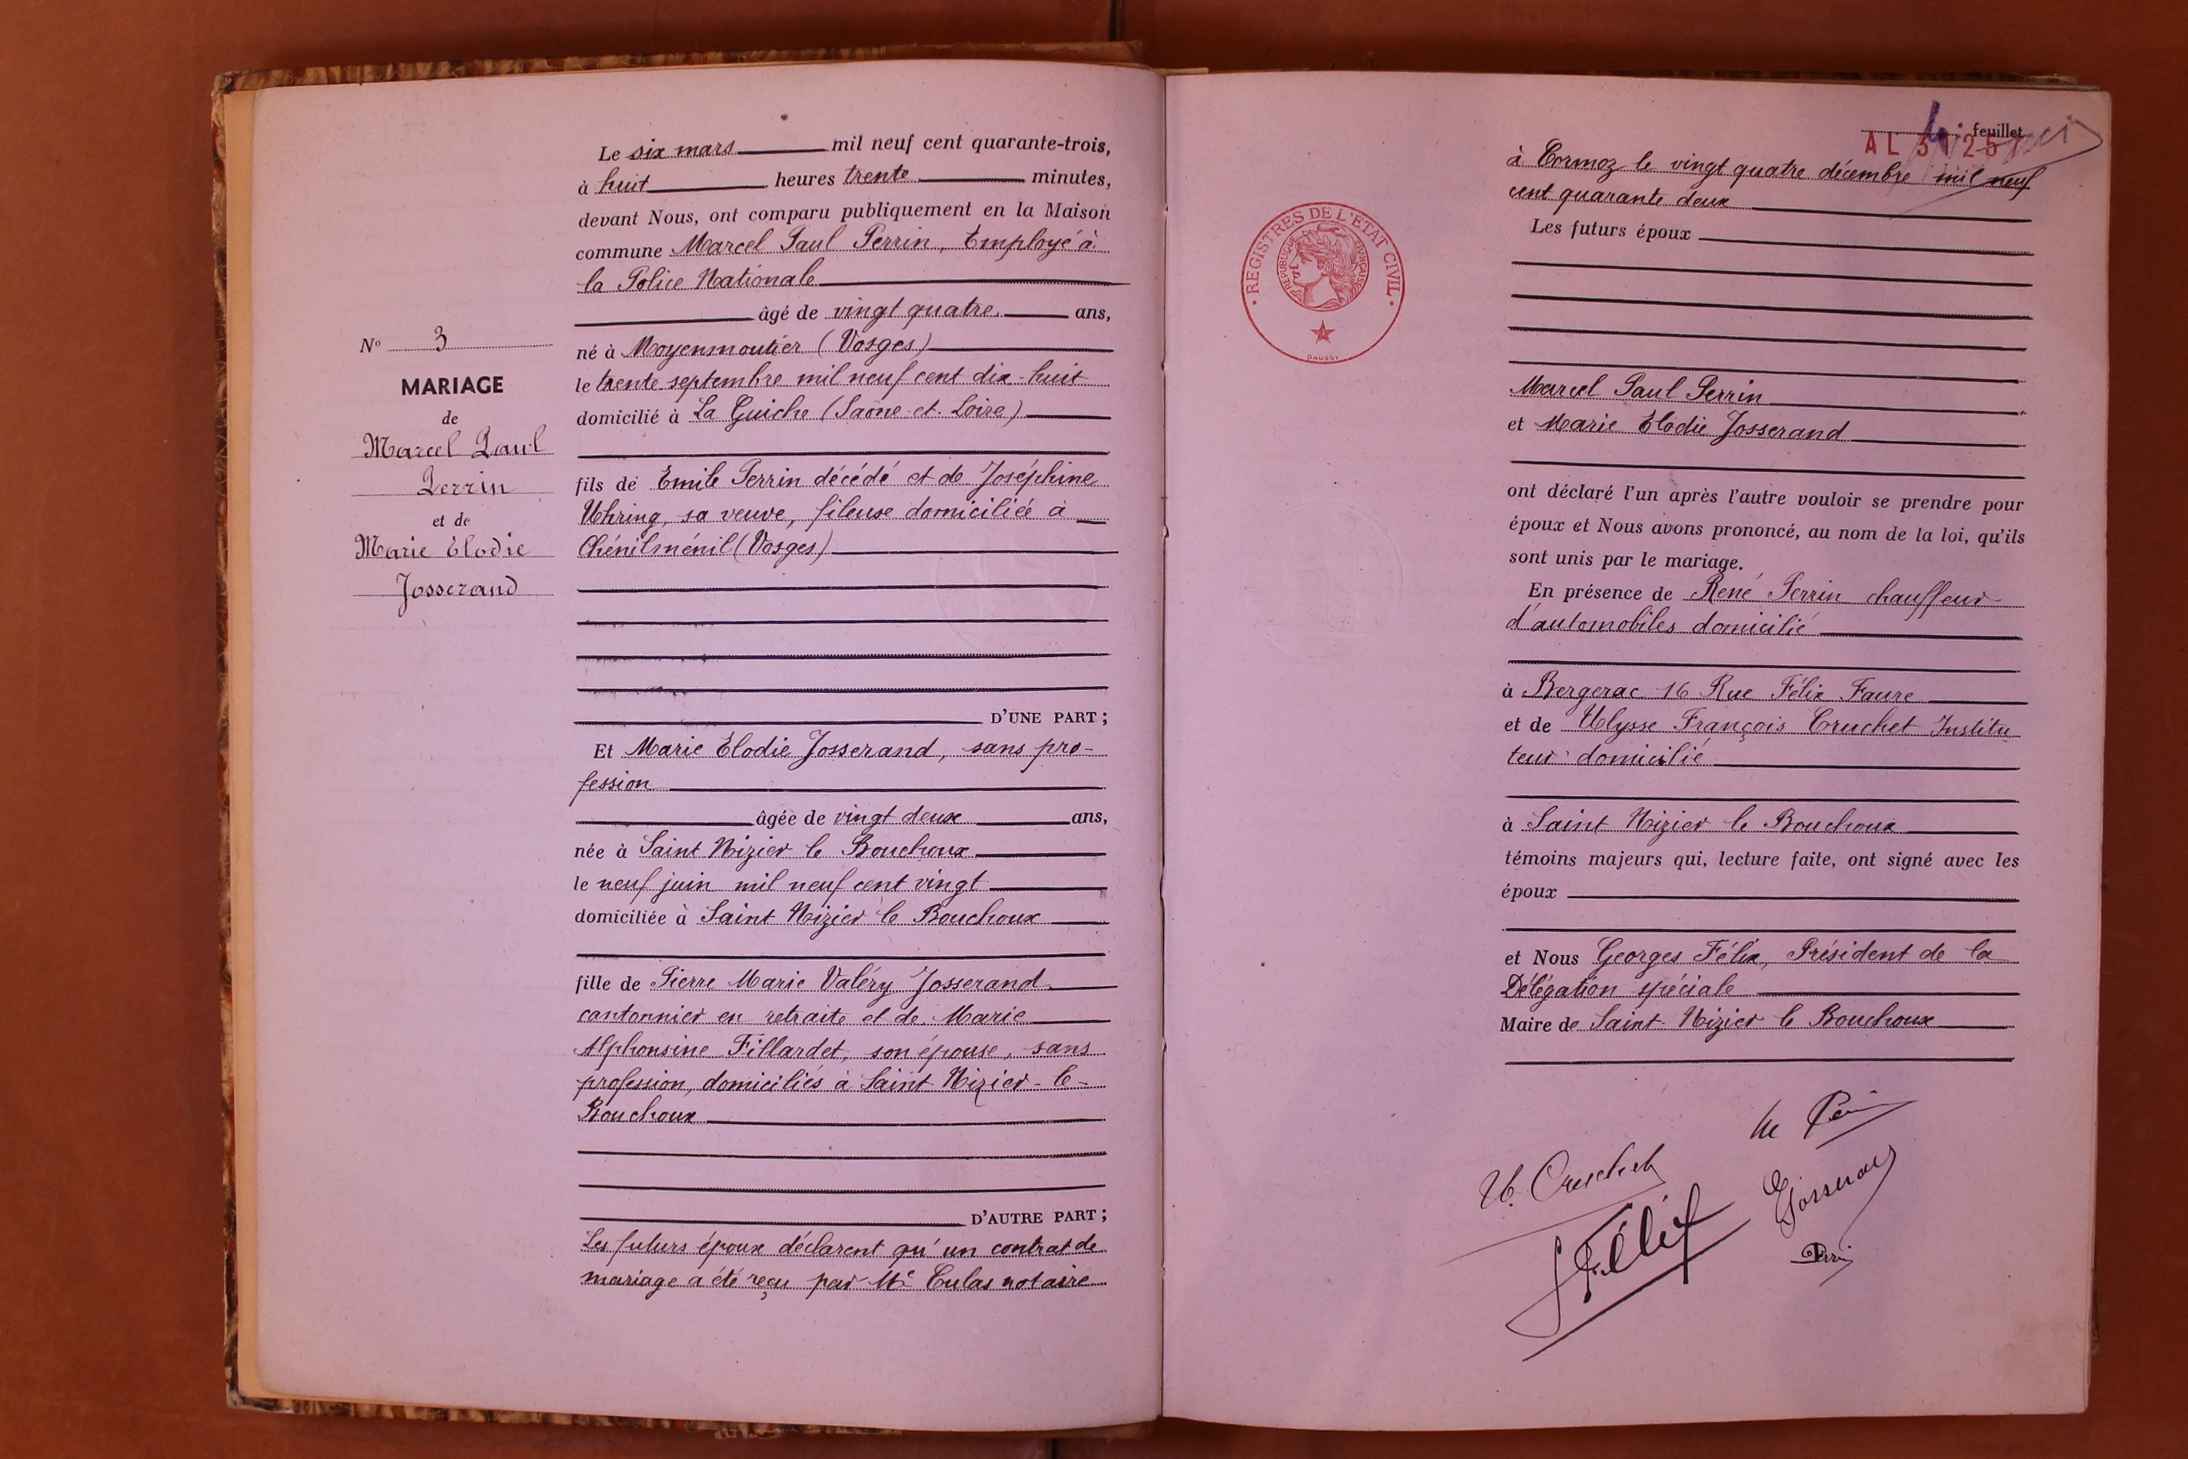 Nº 3
MARIAGE
de
Marcel Paul
Perrin
et de
Marie Elodie
Josserand
Le six mars mil neuf cent quarante-trois,
à huit heures trente minutes,
devant Nous, ont comparu publiquement en la Maison
commune Marcel Paul Perrin, Employé à
la Police Nationale
âgé de vingt quatre ans,
né à Moyenmoutier (Vosges)
le trente septembre mil neuf cent dix-huit
domicilié à La Guiche (Saône-et-Loire)
fils de Emile Perrin décédé et de Joséphine
Uhring, sa veuve, fileuse domiciliée à
Chéniménil (Vosges)
D'UNE PART ;
Et Marie Elodie Josserand, sans pro-
fession
âgée de vingt deux ans,
née à Saint Nizier le Bouchoux
le neuf juin mil neuf cent vingt
domiciliée à Saint Nizier le Bouchoux
fille de Pierre Marie Valéry Josserand
cantonnier en retraite et de Marie
Alphonsine Fillardet, son épouse, sans
profession, domiciliés à Saint Nizier-le-
Bouchoux
D'AUTRE PART ;
Les futurs époux déclarent qu'un contrat de
mariage a été reçu par Me Culas notaire
feuillet
AL 3 251
à Cormoz le vingt quatre décembre mil neuf
cent quarante deux
Les futurs époux
Marcel Paul Perrin
et Marie Elodie Josserand
ont déclaré l'un après l'autre vouloir se prendre pour
époux et Nous avons prononcé, au nom de la loi, qu'ils
sont unis par le mariage.
En présence de René Perrin chauffeur
d'automobiles domicilié
à Bergerac 16 Rue Félix Faure
et de Ulysse François Cruchet Institu
teur domicilié
à Saint Nizier le Bouchoux
témoins majeurs qui, lecture faite, ont signé avec les
époux
et Nous Georges Félix, Président de la
Délégation spéciale
Maire de Saint Nizier le Bouchoux
REGISTRES DE L'ETAT CIVIL
REPUBLIQUE FRANÇAISE
U. Cruchet
GFélix
E Josserand
Perrin